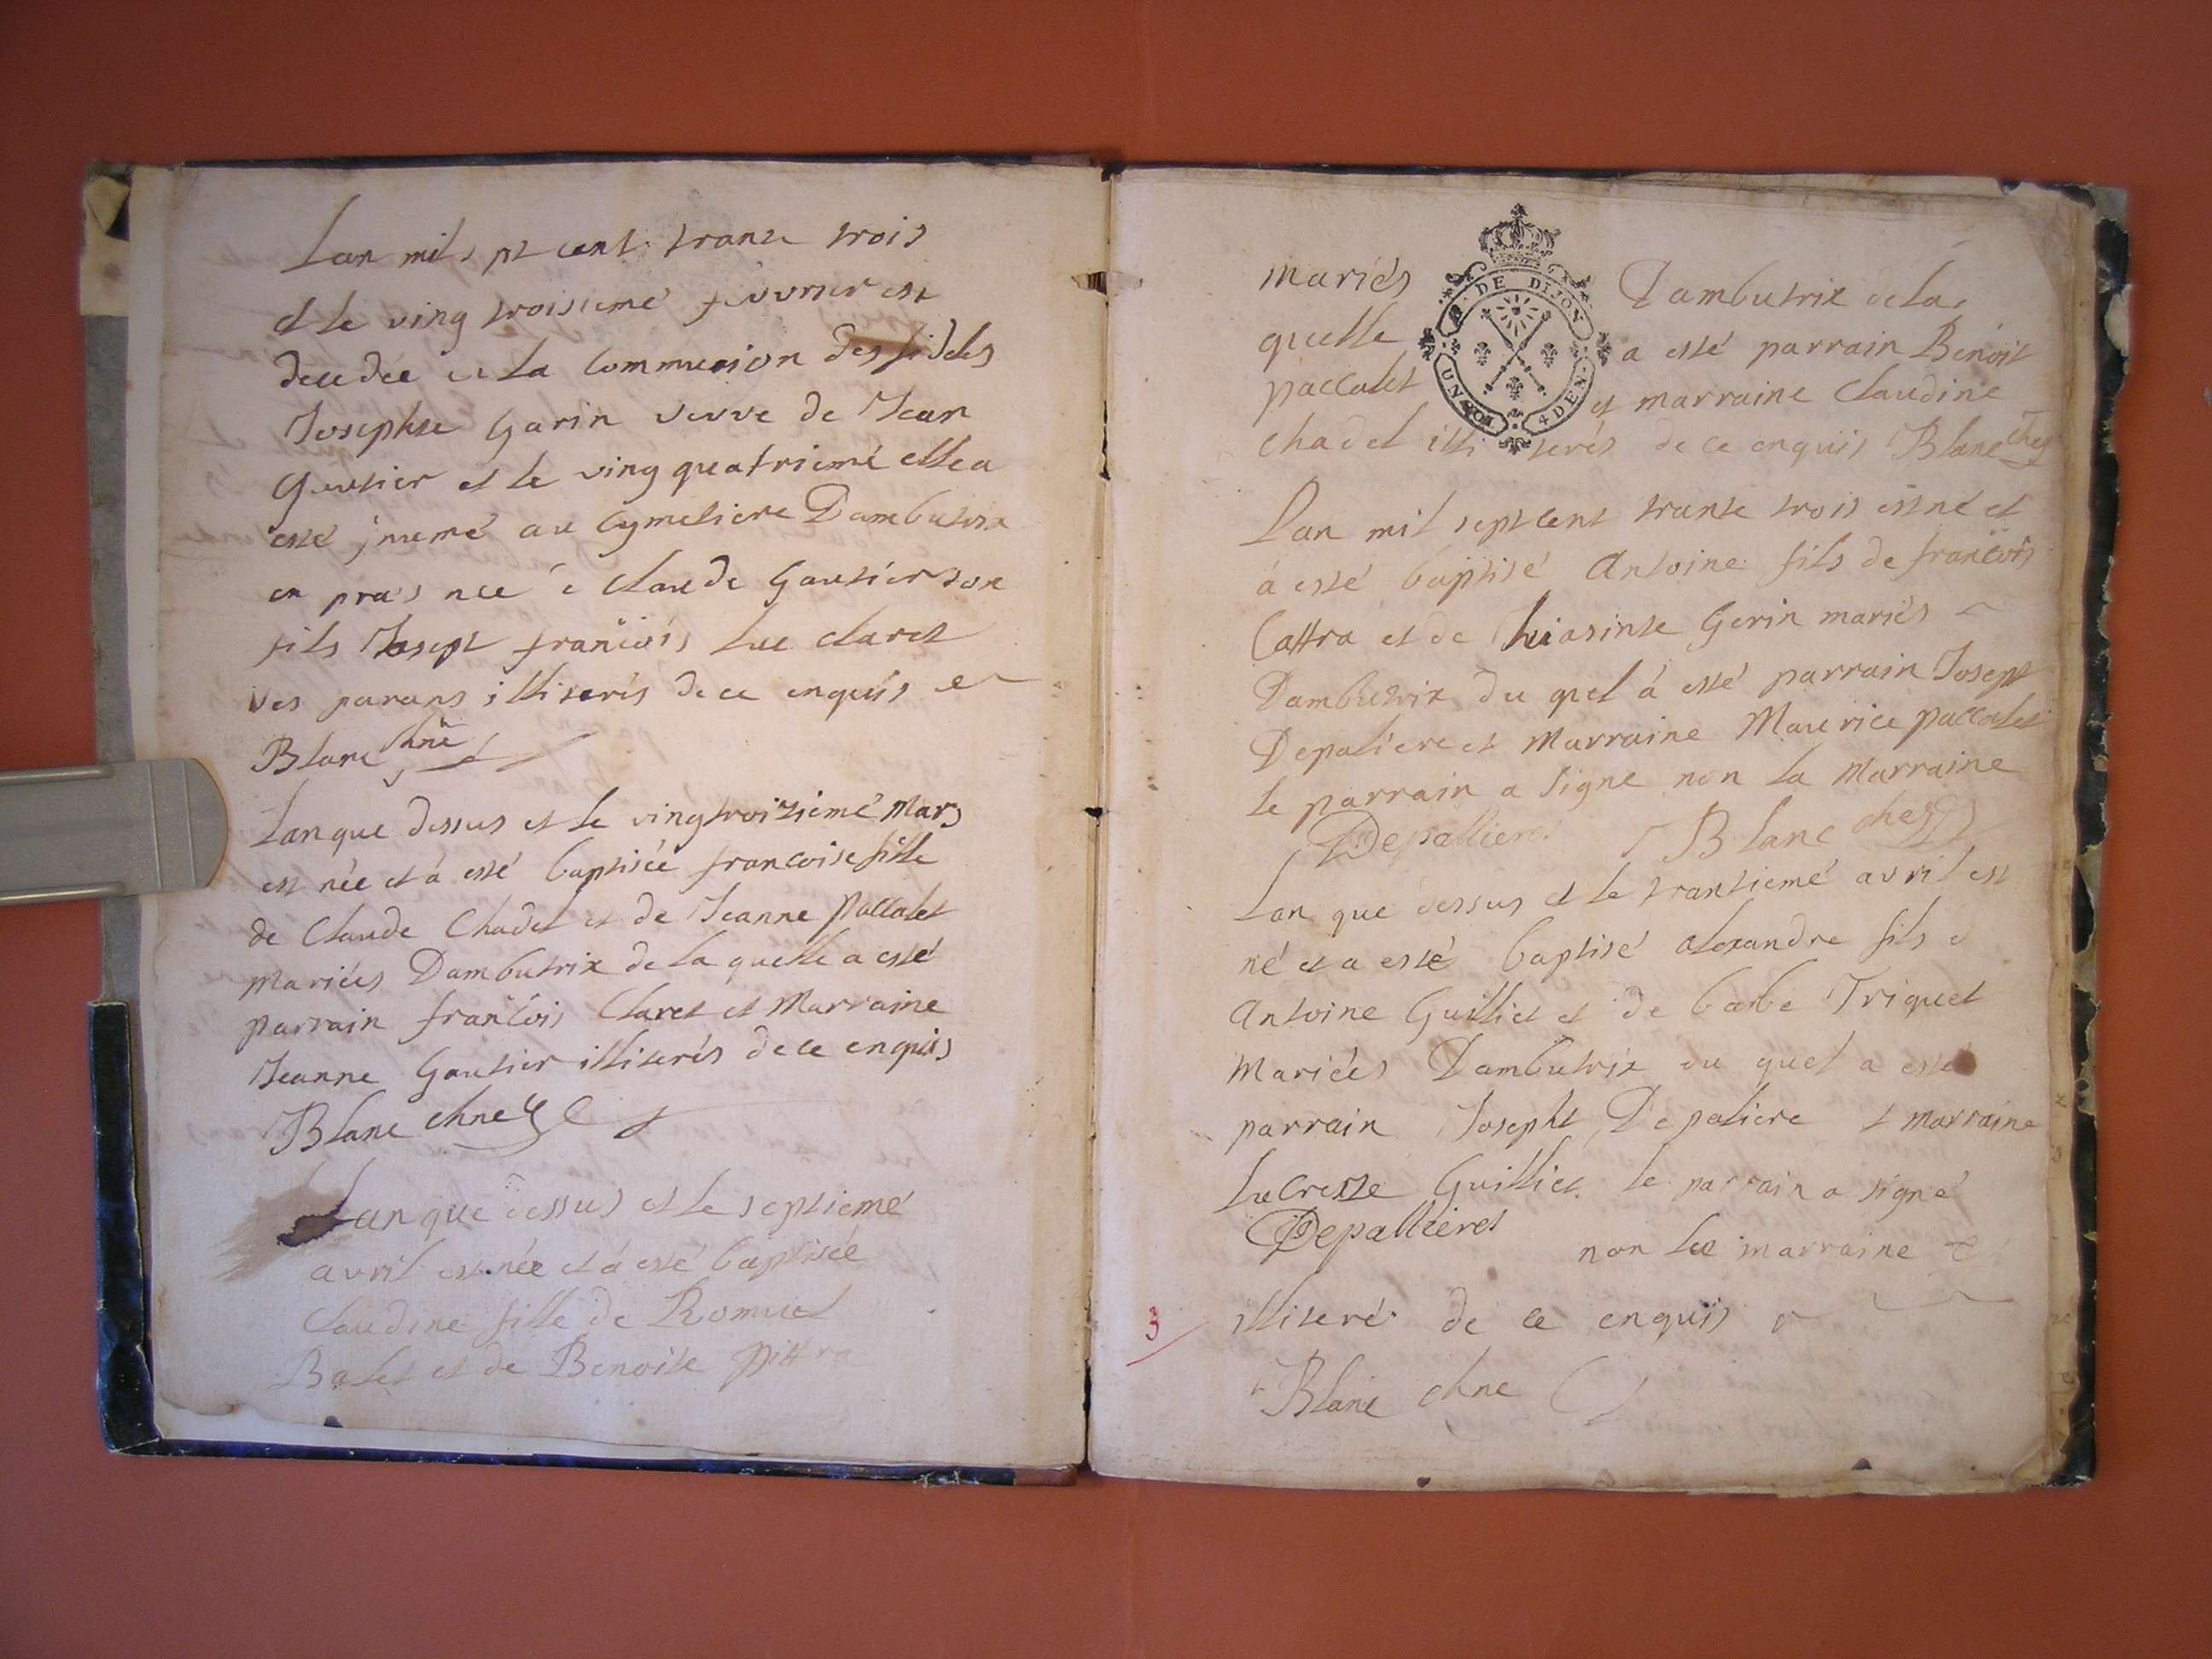 Lan mil s pt cent trante trois
et le ving troisiemé fevvrier est
decedée e la Commusion des fideles
Josephte Garin veuve de Jean
Gautier et le ving quatriemé elle a
esté jnumé au Cymetiere Dambutrix
en pras nce é Claude Gautier son
fils Josept françois luc claret
ses parans illiterés de ce enquis
Blanc chne
Lan que dessus et le vingtroiziémé Mars
est née et á esté baptisée francoise fille
de Claude Chadel et de Jeanne Paccalet
Mariées Dambutrix de la quelle a esté
parrain francois Claret et Marraine
Jeanne Gautier illiterés de ce enquis
Blanc chne
Lan que dessus et le septiemé
avril est née et á esté baptisée
Claudine fille de Romuel
Balet et de Benoite Pittra
mariés Dambutrix de la
quelle a esté parrain Benoit
paccalet et marraine Claudine
chadel illi terés de ce enquis Blanc chne
G. DE DIJON
UN SOL 4 DEN.
Lan mil sept cent trante trois est né et
á esté baptisé Antoine fils de francois
Cattra et de hiasinte Gerin mariés
Dambutrix du quel á esté parrain Josept
Depaliere et Marraine Maurice paccalet
le parrain a signe non la Marraine
Depallieres Blanc chne
Lan que dessus et le trantiemé avril est
né et a esté baptisé alexandre fils d
Antoine Guilliet et de barbe Triquet
Mariées Dambutrix du quel a esté
parrain Josepht Depaliere t marraine
Lucresse Guilliet le parrain a signé
Depallieres non la marraine
3 illiteré de ce enquis
Blanc chne